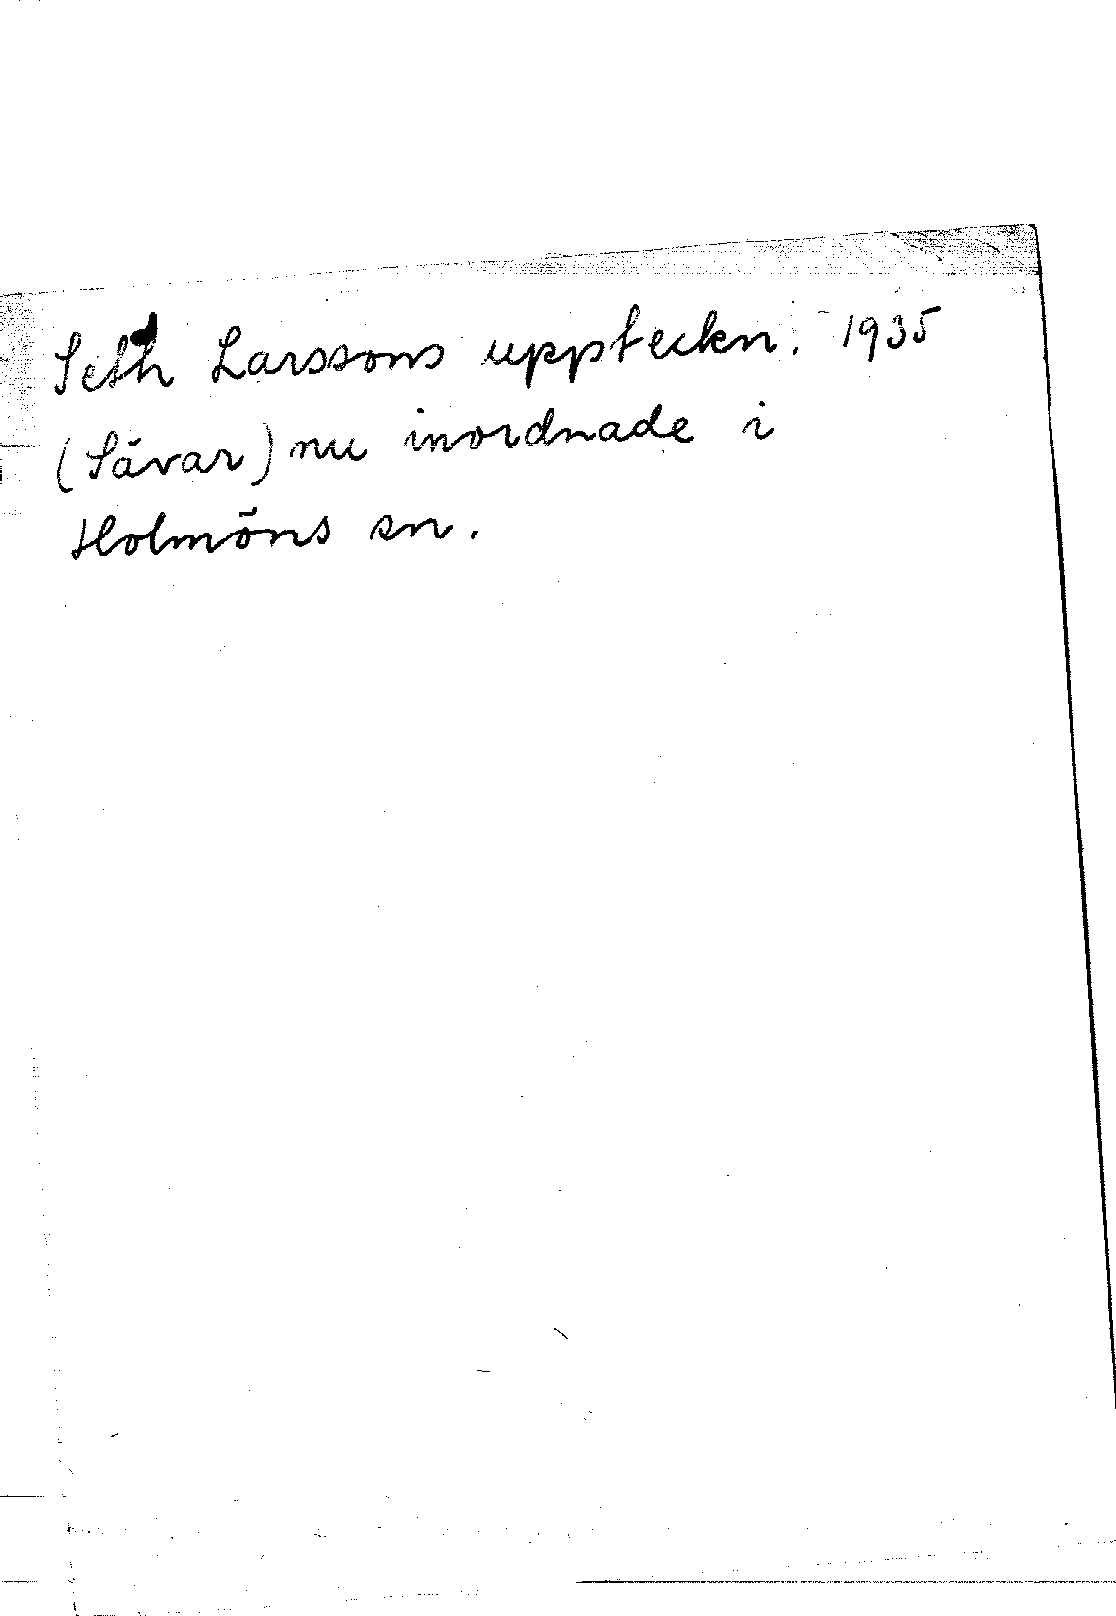 Seth Larssons uppteckn. 1935
(Sävar) nu inordnade i
Holmöns sn.